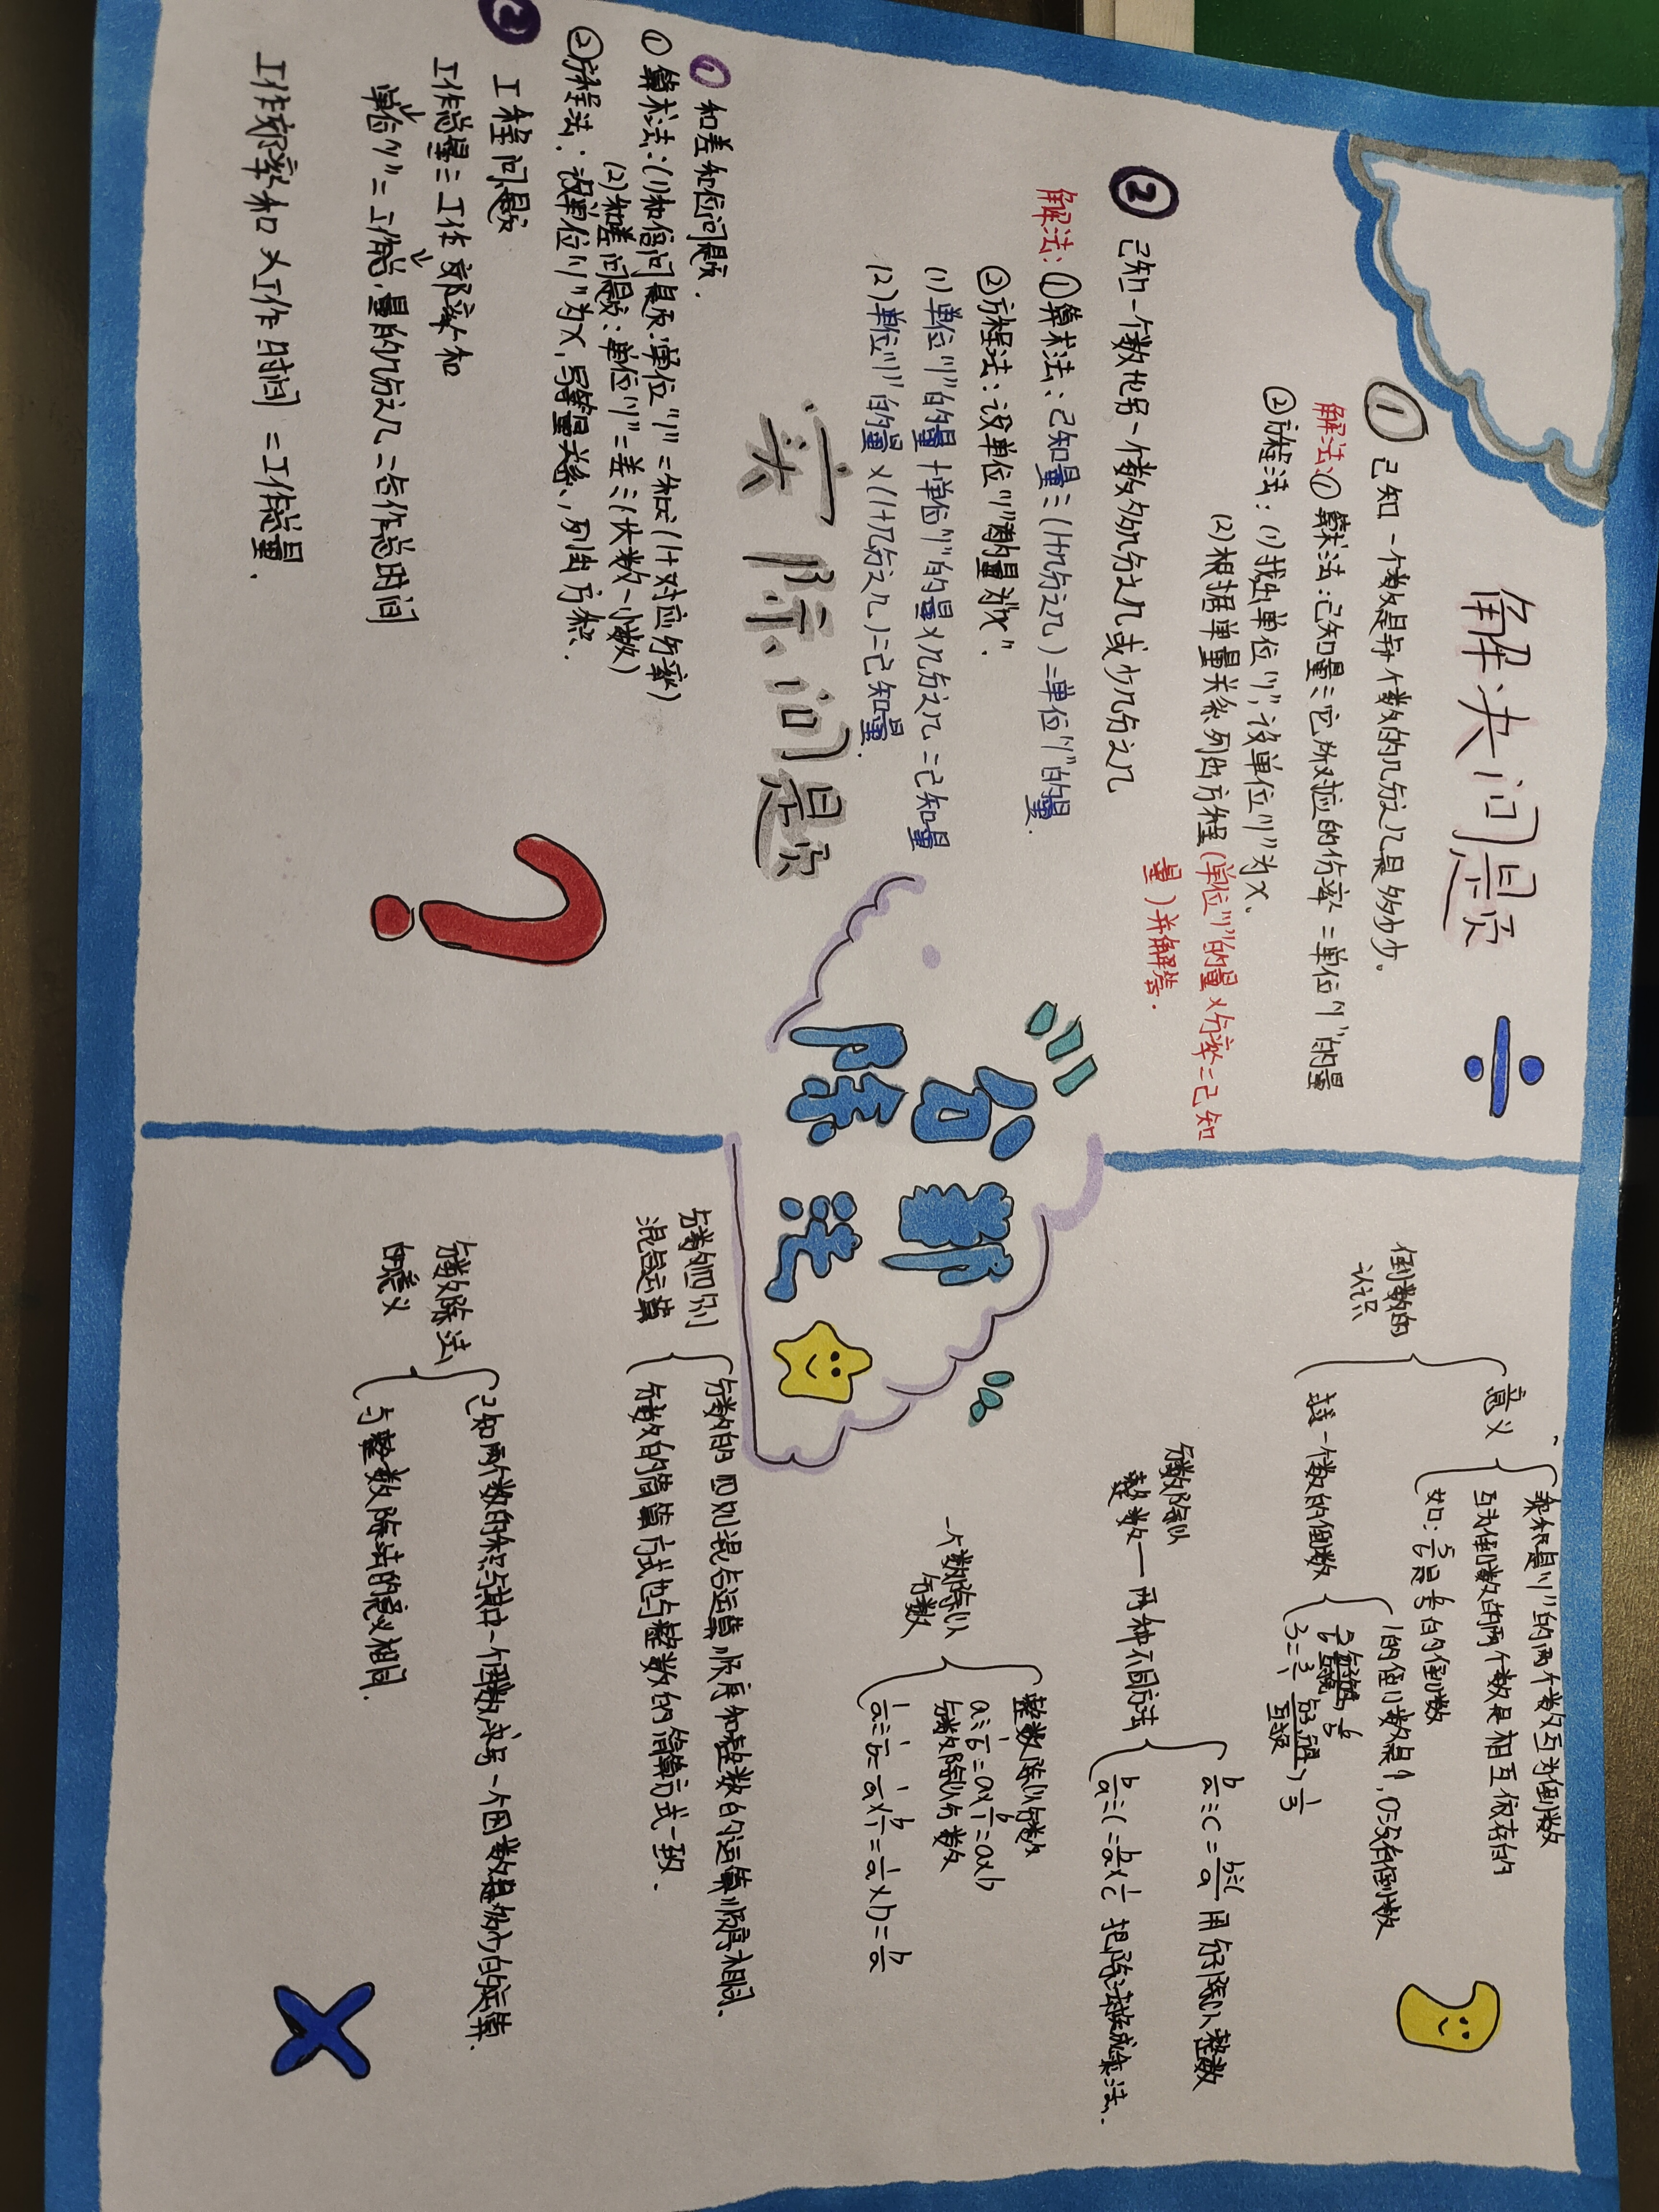 解决问题
① 已知一个数是另一个数的几分之几是多少。
解法:① 算术法:已知量÷它所对应的分率=单位"1"的量
②方程法:(1)找出单位"1",设单位"1"为x.
(2)根据单量关系列出方程(单位"1"的量×分率=已知
量)并解答.
② 已知一个数比另一个数多几分之几或少几分之几
解法:①算术法:已知量÷(1+几分之几)=单位"1"的量.
②方程法:设单位"1"的量为"x".
(1)单位"1"的量+单位"1"的量×几分之几=已知量
(2)单位"1"的量×(1+几分之几)=已知量.
实际问题
① 和差和倍问题.
①算术法:(1)和倍问题:单位"1"=和÷(1+对应分率)
(2)和差问题:单位"1"=差÷(大数-小数)
②方程法:设单位"1"为x,写等量关系,列出方程.
② 工程问题
工作总量÷工作效率和
单位"1"=工作总量的几分之几=合作总时间
工作效率和×工作时间=工作总量.
分数
除法
倒数的
认识
意义
乘积是"1"的两个数互为倒数
互为倒数的两个数是相互依存的
如:5/6是6/5的倒数
找一个数的倒数
1的倒数是1,0没有倒数
3=3/1 分子分母互换 1/3
分数除以
整数—两种不同方法
b/a÷c=b÷c/a 用分子除以整数
b/a÷c=b/a×1/c 把除法转换成乘法.
一个数除以
分数
整数除以分数
a÷1/b=a×b/1=a×b
分数除以分数
1/a÷1/b=1/a×b/1=1/a×b=b/a
分数四则
混合运算
分数的四则混合运算顺序和整数的运算顺序相同.
分数的简算方式也与整数的简算方式一致.
分数除法
的意义
已知两个数的积与其中一个因数,求另一个因数是多少的运算.
与整数除法的意义相同.